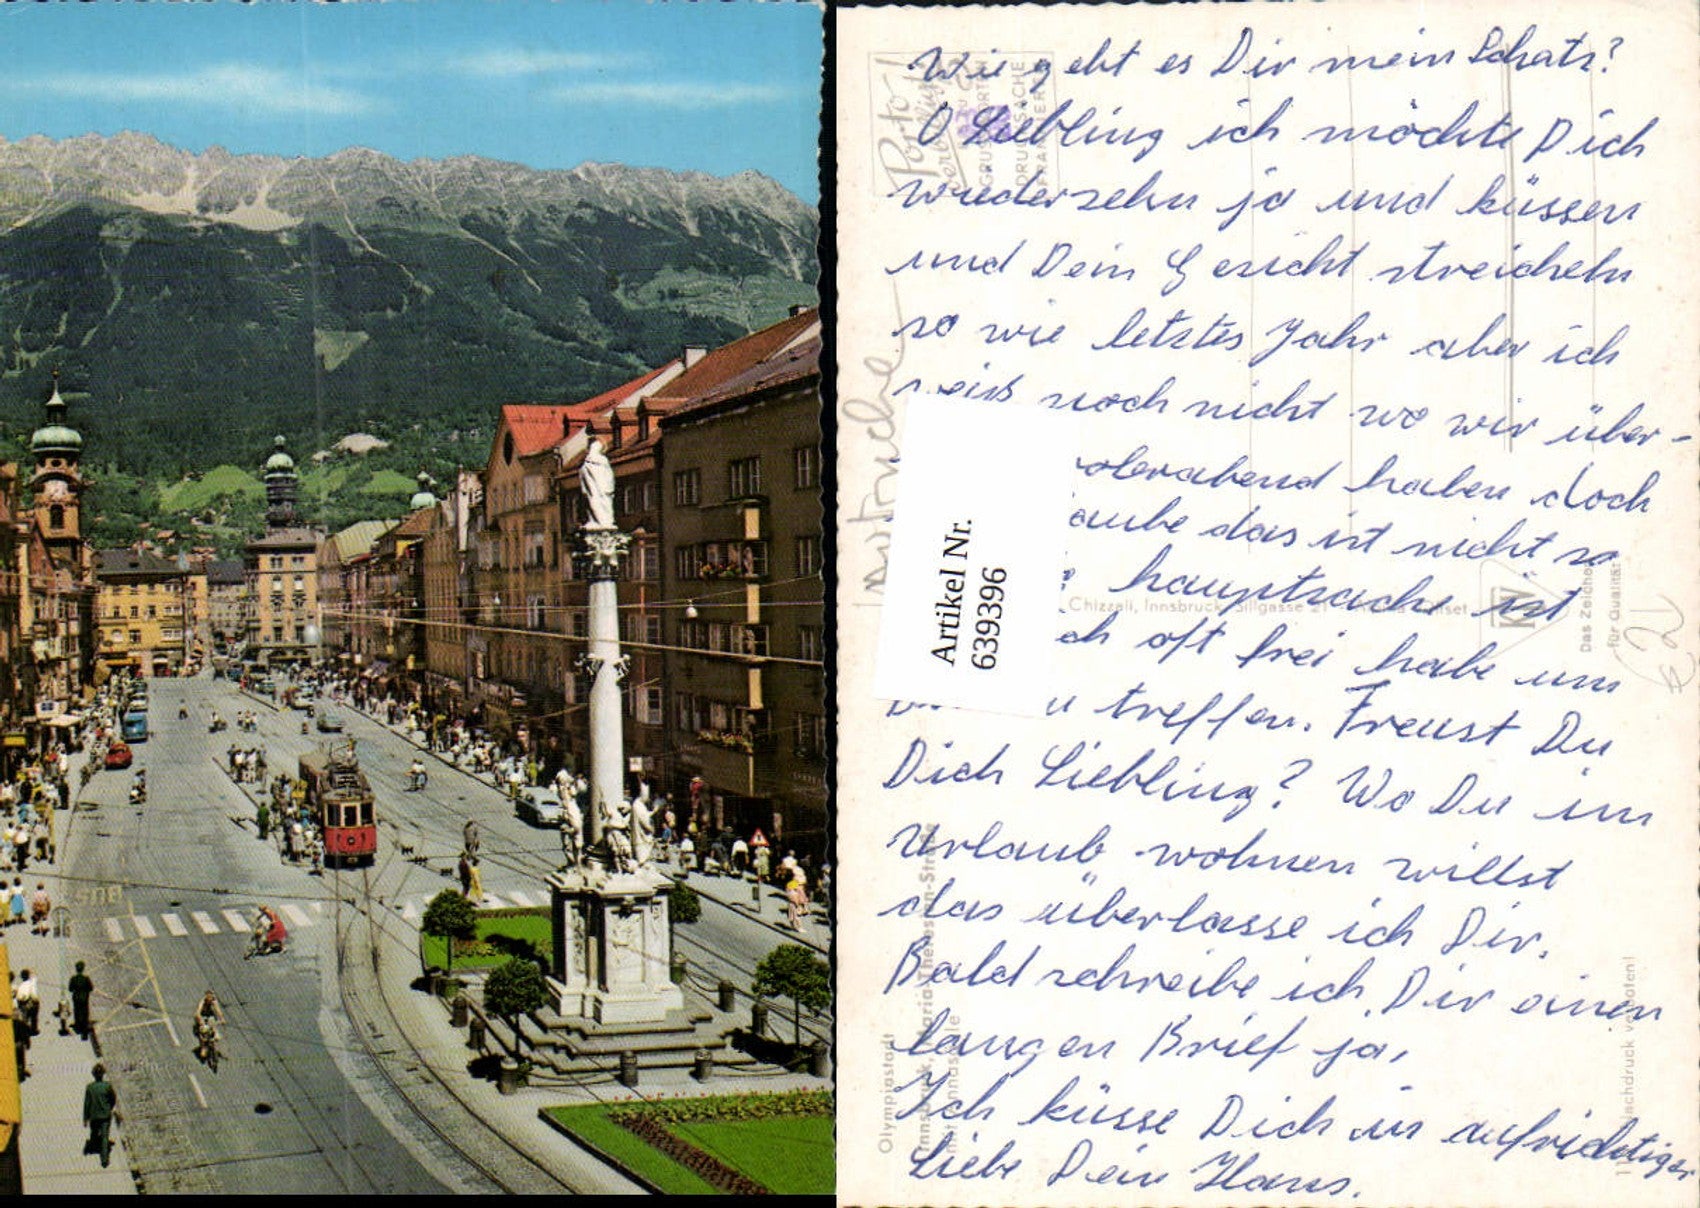 Wie geht es Dir mein Schatz?
O Liebling ich möchte Dich
wiedersehn ja und küssen
und Dein Gesicht streicheln
so wie letztes Jahr aber ich
weiß noch nicht wo wir über-
haben doch
das ist nicht so
hauptsache ist
oft frei habe um
treffen. Freust Du
Dich Liebling? Wo Du im
Urlaub wohnen willst
das überlasse ich Dir.
Bald schreibe ich Dir einen
langen Brief ja,
Ich küsse Dich in aufrichtiger
Liebe Dein Hans.
Artikel Nr.
639396
Porto-!
GRUSSPOSTKARTE
DRUCKSACHE
Chizzali, Innsbruck, Sillgasse 21
KV
Das Zeichen
für Qualität
Olympiastadt
Innsbruck, Maria-Theresien-Straße
mit Annasäule
Nachdruck verboten!
BUS